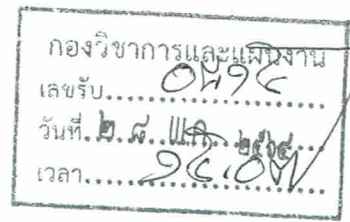 กองวิชาการและแผนงาน
เลขรับ
วันที่ ๒ ๘ พ.ค. ๒๕๖๔
เวลา